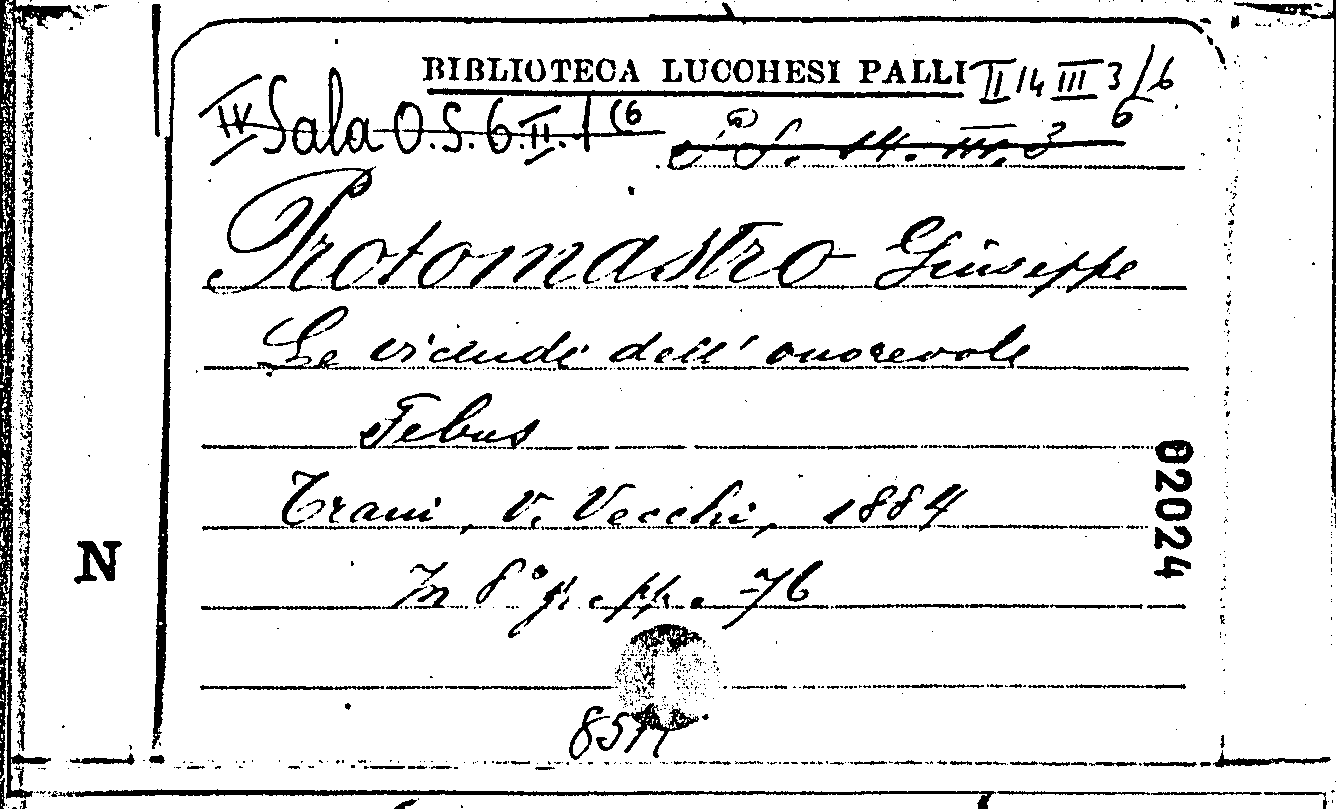 BIBLIOTECA LUCCHESI PALLI II 14 III 3/6
IV Sala O.S. 6.II.1 (6
S. 14. III. 3 6
Protomastro Giuseppe
Le vicende dell' onorevole
Febus
Trani, V. Vecchi, 1884
In 8° gr. pp. 76
02024
N